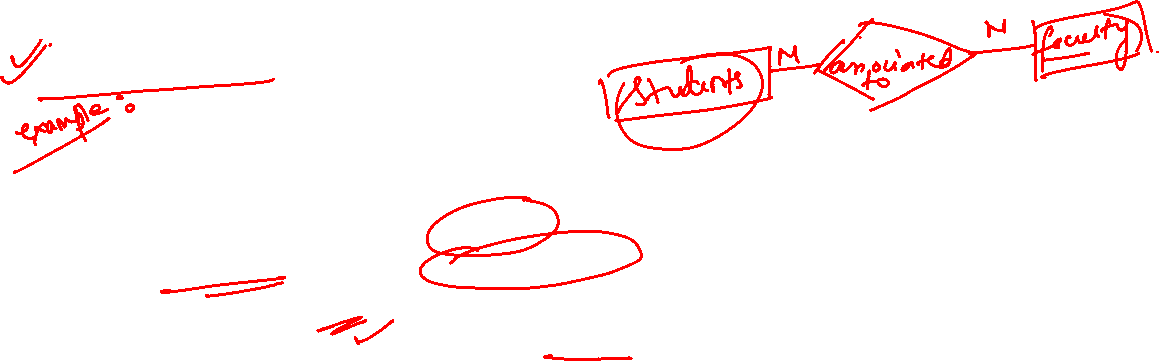 example :
Students M associated to N faculty